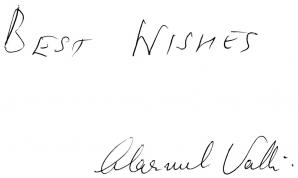 BEST WISHES
Alarmel Valli